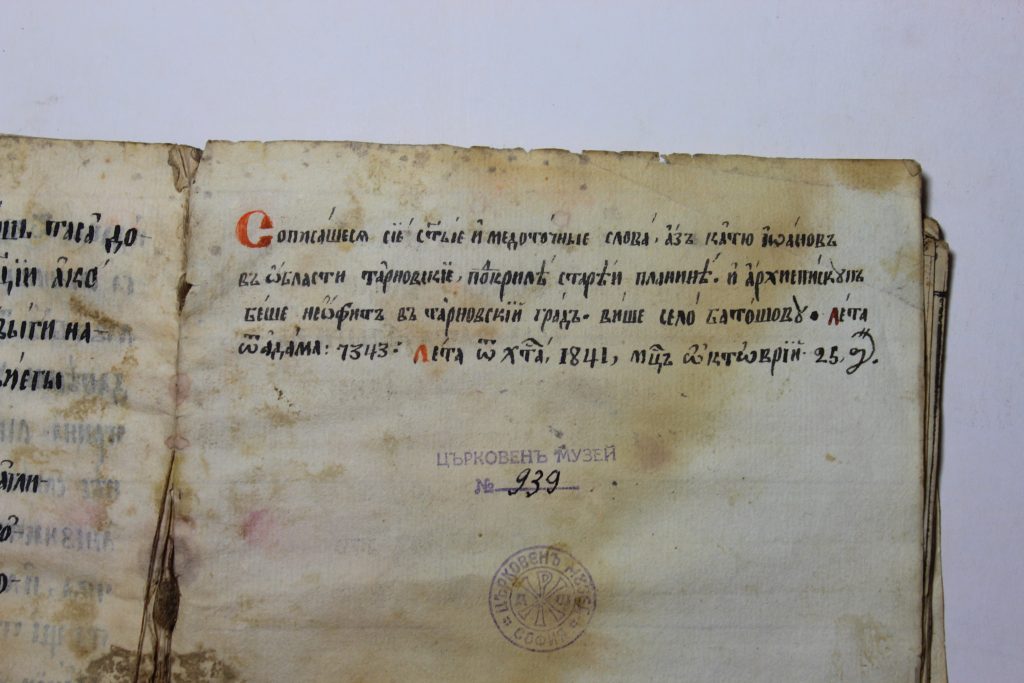 ꙗшь таса̀ до
ѡ҆́ко
выти на-
Сописашеся сїѐ ст҃ы́е и҆ медото́чные слова̀, а҆́зъ ка́тю їѡа́новъ
въ ѡ҆́бласти та́рновскїе, покрилѐ старѣ́и планинѣ̀. и҆ а҆рхиепи́скупъ
бе́ше неѡ́фитъ въ та́рновскїй гра́дъ. ви́ше село̀ ба́тошову. ле́та
ѿ а҆да́ма: 7343: ле́та ѿ хт҃а̀, 1841, мц҃ъ ѡ҆ктѡ́врїй 25,
ЦЪРКОВЕНЪ МУЗЕЙ
№ 939
ЦЪРКОВЕНЪ МУЗЕЙ
СОФИЯ